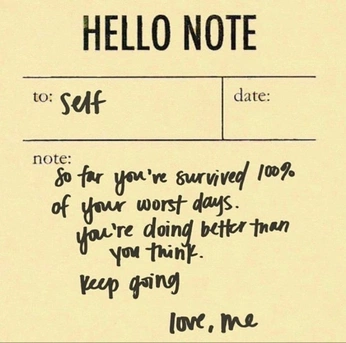 HELLO NOTE
to: self
date:
note:
So far you've survived 100%
of your worst days.
you're doing better than
you think.
keep going
love, me